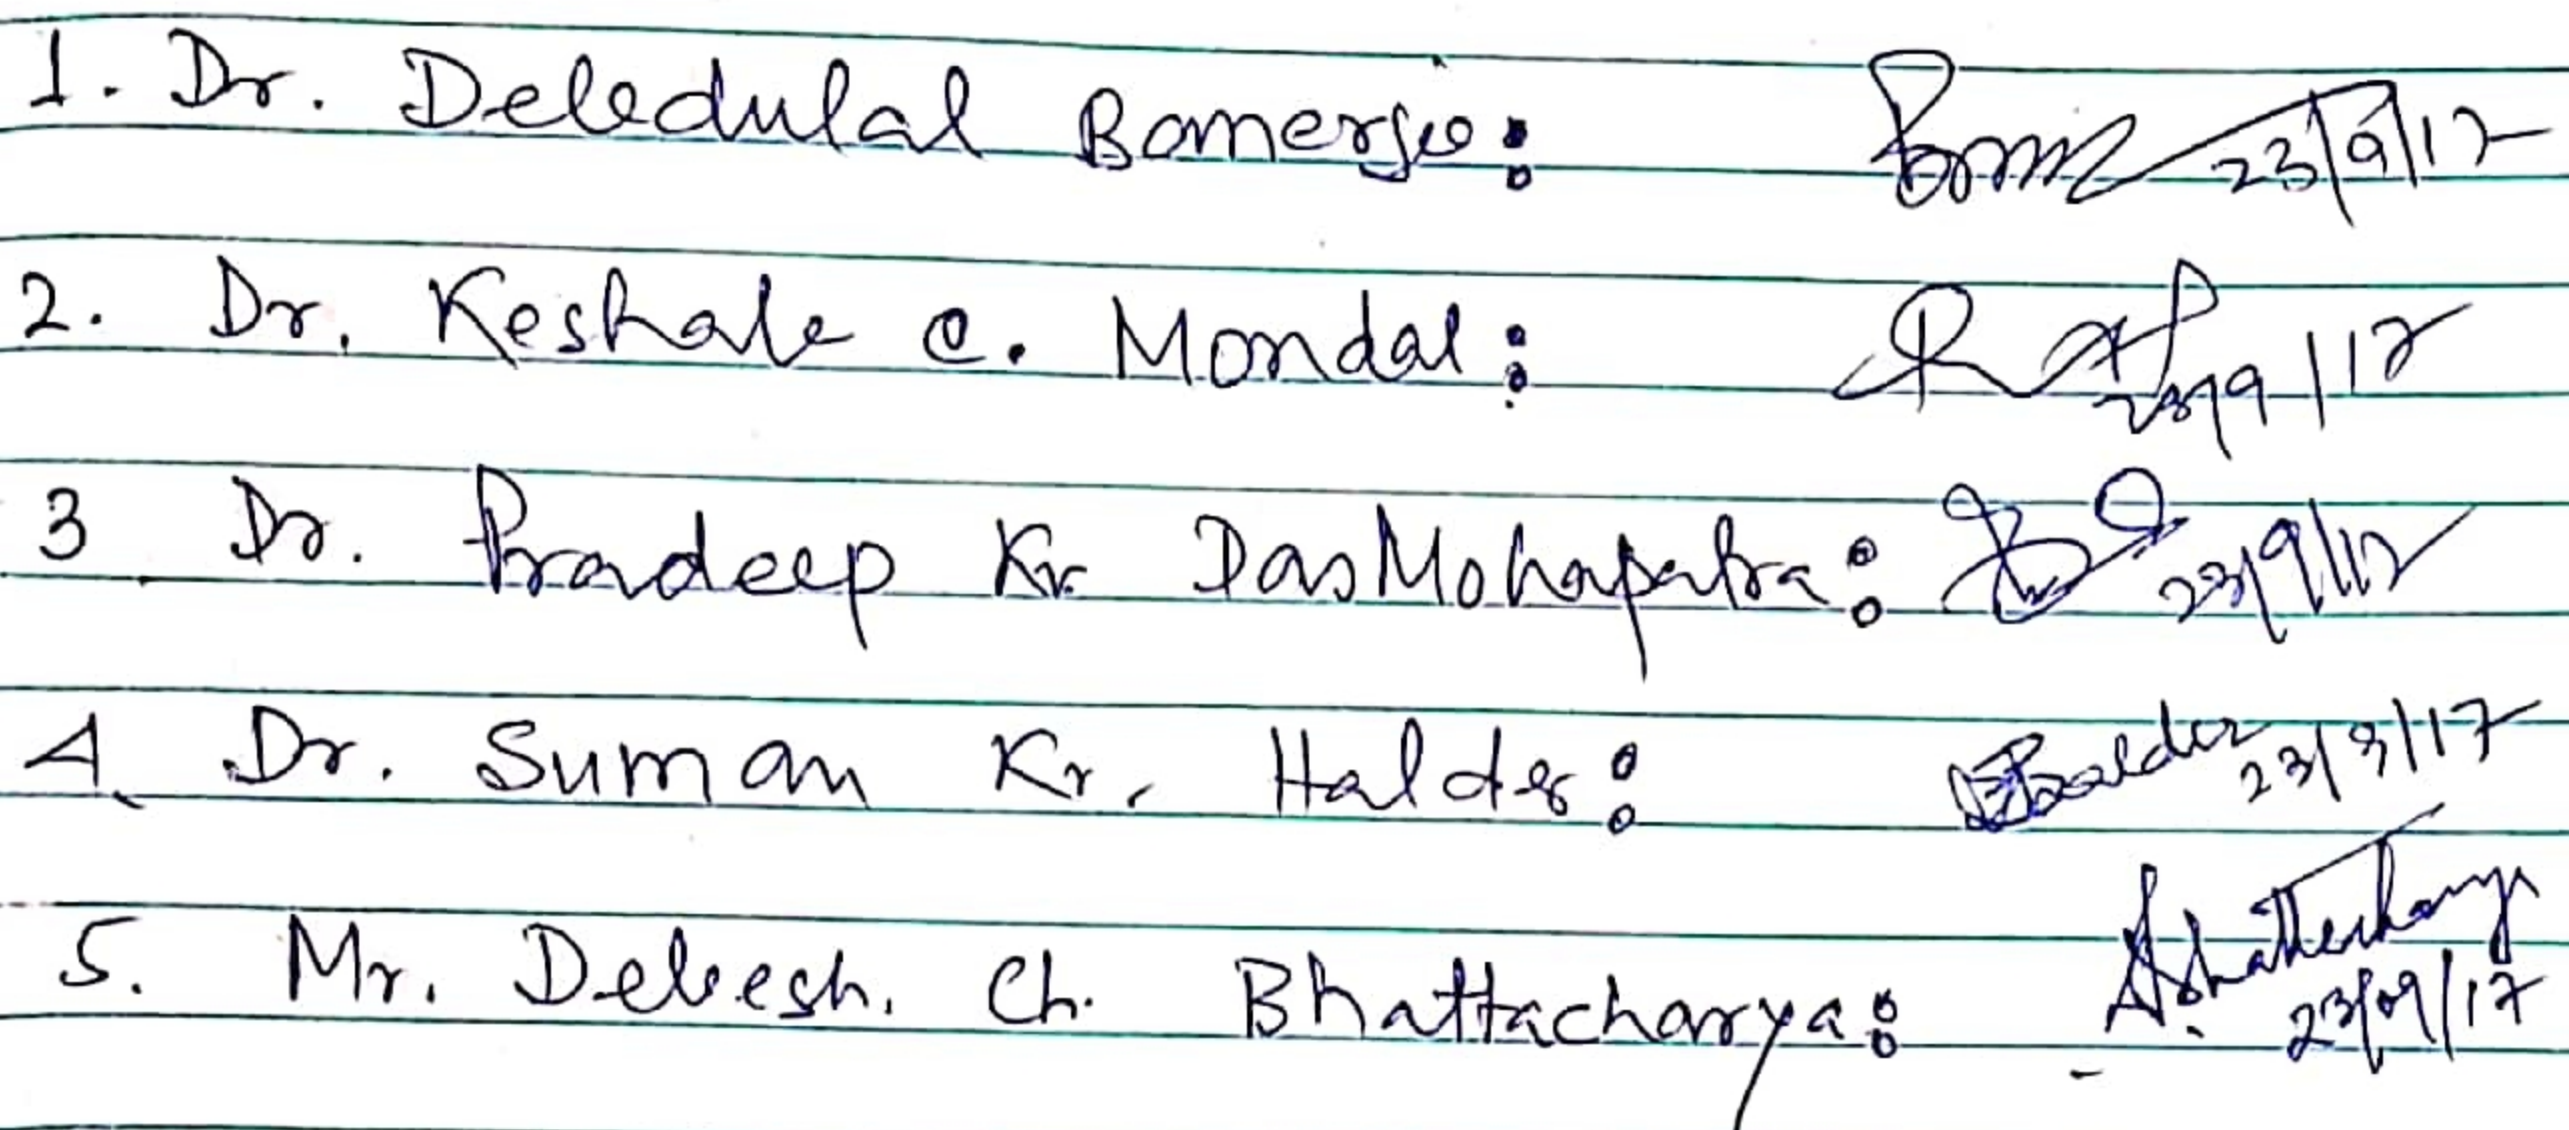 1. Dr. Debdulal Banerjee: 23/9/17
2. Dr. Keshab C. Mondal: 23/9/17
3 Dr. Pradeep Kr DasMohapatra: 23/9/17
4. Dr. Suman Kr. Halder: 23/9/17
5. Mr. Debesh. Ch. Bhattacharya: 23/09/17